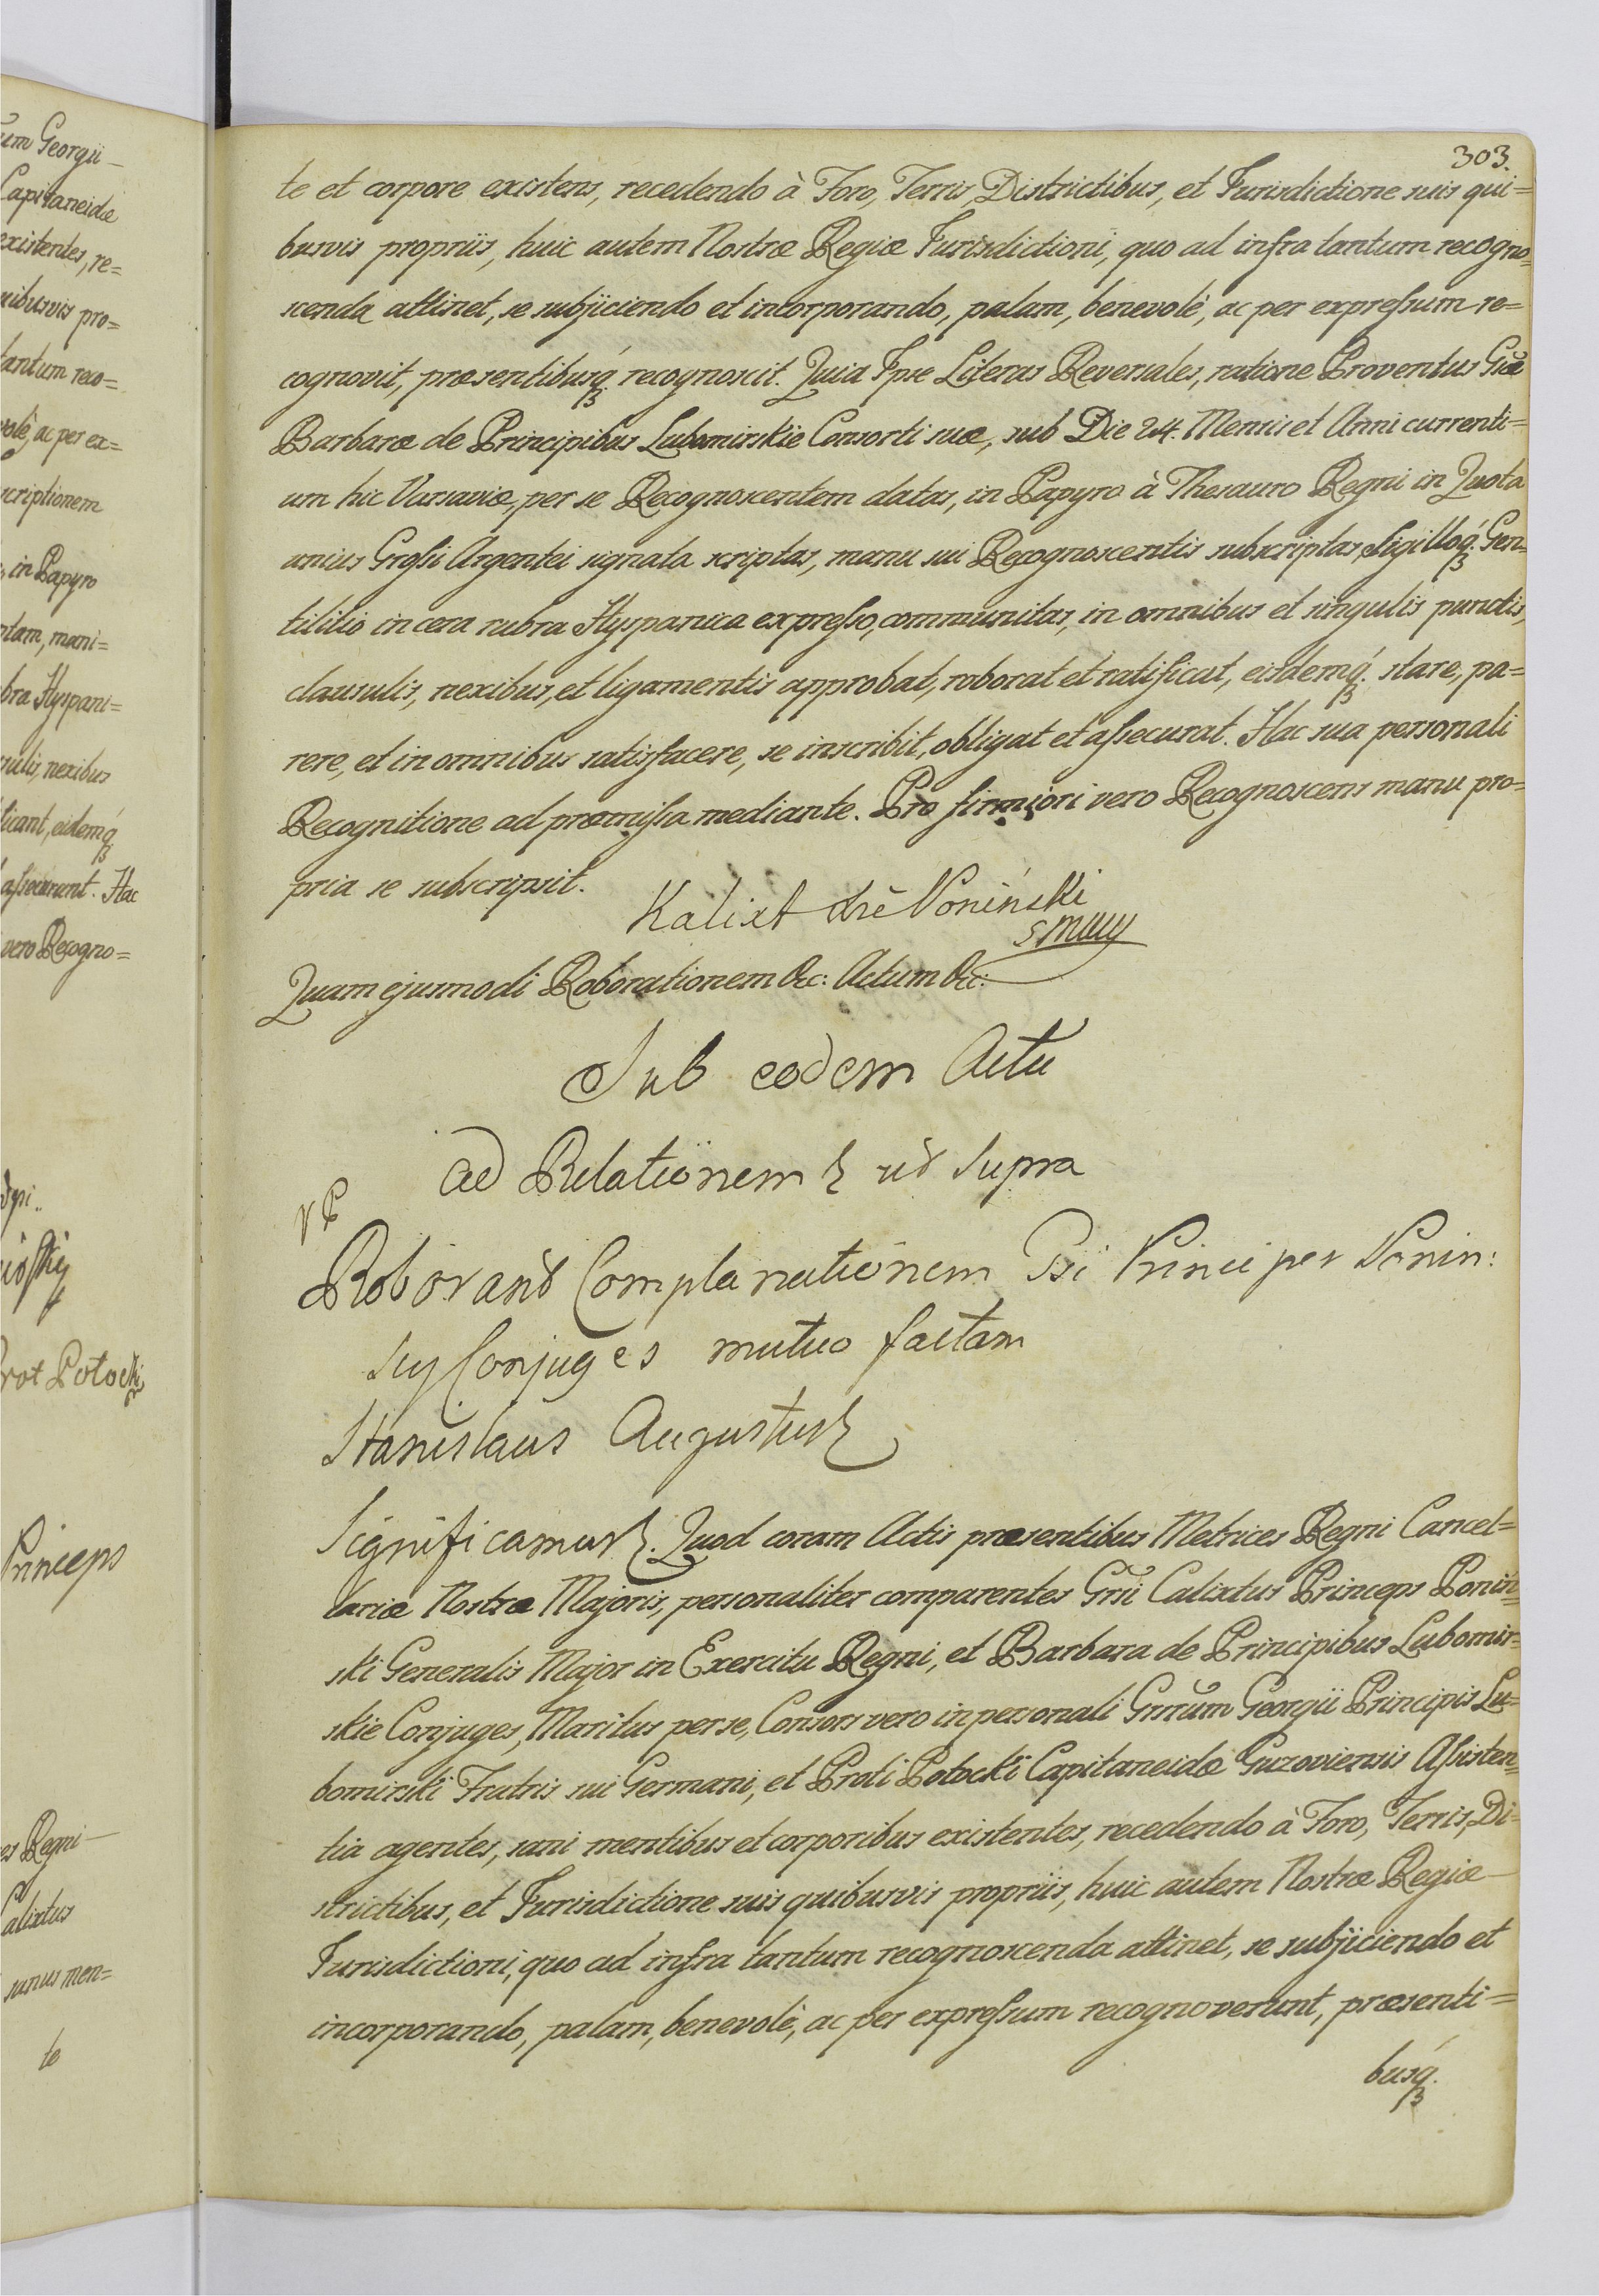 um Georgii
Capitaneidæ
existentes, re=
uibusvis pro=
tantum reco=
volè, ac per ex=
scriptionem
in Papyro
bra Hyspani=
nexibus
ficant, eidemq́;
assecurant. Hac
vero Recogno=
rot Potocki
Princeps
es Regni
alixtus
sanus men=
te
303.
te et corpore existens, recedendo à Foro, Terris, Districtibus, et Jurisdictione suis qui=
busvis propriis, huic autem Nostræ Regiæ Jurisdictioni, quo ad infra tantum recogno=
scenda attinet, se subjiciendo et incorporando, palam, benevolè, ac per expressum re=
cognovit, præsentibusq́; recognoscit. Quia Ipse Literas Reversales, ratione Proventus Gnæ
Barbaræ de Principibus Lubomirskie Consorti suæ, sub Die 24. Mensis et Anni currenti=
um hic Varsaviæ, per se Recognoscentem datas, in Papyro à Thesauro Regni in Quota
unius Grossi Argentei signata scriptas, manu sui Recognoscentis subscriptas, Sigilloq́; Gen=
tilitio in cera rubra Hyspanica expresso, communitas, in omnibus et singulis punctis,
clausulis, nexibus, et ligamentis approbat, roborat et ratificat, eisdemq́; stare, pa=
rere, et in omnibus satisfacere, se inscribit, obligat et assecurat. Hac sua personali
Recognitione ad præmissa mediante. Pro firmiori vero Recognoscens manu pro=
pria se subscripsit.
Kalixt Xże Poniński
Quam ejusmodi Roborationem &c: Actum &c:
Sub eodem Actu
ad Relationem ut supra
Roborant Complanationem Principes Ponin:
scy Conjuges mutuo factam
Stanislaus Augustus
Significamus. Quod coram Actis præsentibus Metrices Regni Cancel=
lariæ Nostræ Majoris, personaliter comparentes Gnsi Calixtus Princeps Ponin=
ski Generalis Major in Exercitu Regni, et Barbara de Principibus Lubomir=
skie Conjuges, Maritus per se, Consors vero in personali Gnrum Georgii Principis Lu=
bomirski Fratris sui Germani, et Proti Potocki Capitaneidæ Guzoviensis Assisten=
tia agentes, sani mentibus et corporibus existentes, recedendo à Foro, Terris, Di=
strictibus, et Jurisdictione suis quibusvis propriis, huic autem Nostræ Regiæ
Jurisdictioni, quo ad infra tantum recognoscenda attinet, se subjiciendo et
incorporando, palam, benevolè, ac per expressum recognoverunt, præsenti=
busq́;